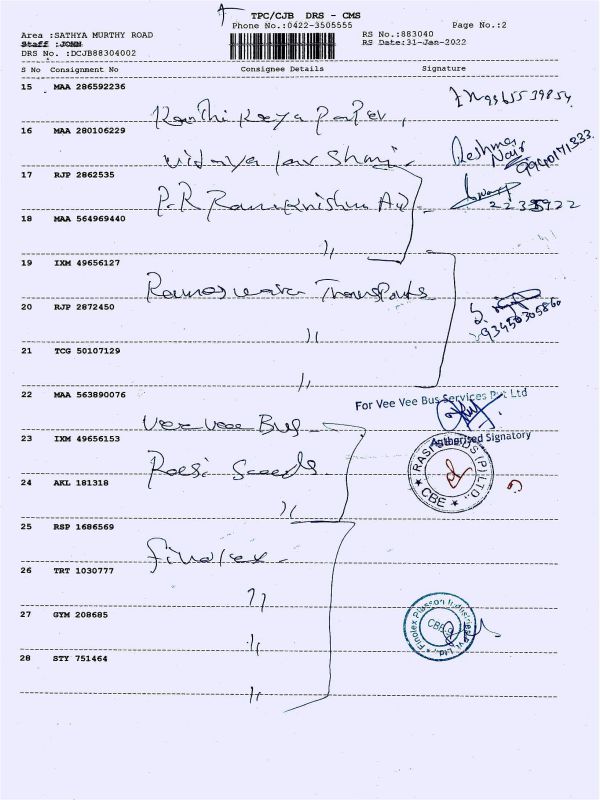 TPC/CJB DRS - CMS
Phone No.:0422-3505555 Page No.:2
Area :SATHYA MURTHY ROAD RS No.:883040
Staff :JOHN RS Date:31-Jan-2022
DRS No. :DCJB88304002
S No Consignment No Consignee Details Signature
15 MAA 286592236
16 MAA 280106229
Reshma Nair
9940171333
17 RJP 2862535
P.R Ramakrishna
18 MAA 564969440
"
19 IXM 49656127
Transports
20 RJP 2872450
"
93456305860
21 TCG 50107129
"
22 MAA 563890076
Vee Vee Bus
For Vee Vee Bus Services Pvt Ltd
Authorised Signatory
23 IXM 49656153
Rasi Seeds
RASI SEEDS (P) LTD.,
★ CBE ★
24 AKL 181318
"
25 RSP 1686569
finolex
26 TRT 1030777
"
27 GYM 208685
"
Finolex Plasson Industries Pvt. Ltd.,
CBE
28 STY 751464
"